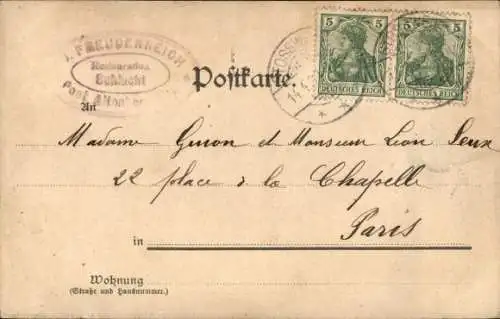 FREUDENREICH
Restauration
Schlucht
Post
Postkarte.
5 5
DEUTSCHES REICH DEUTSCHES REICH
An
Madame Guion et Monsieur Léon
22 place de la Chapelle
Paris
in
Wohnung
(Straße und Hausnummer.)